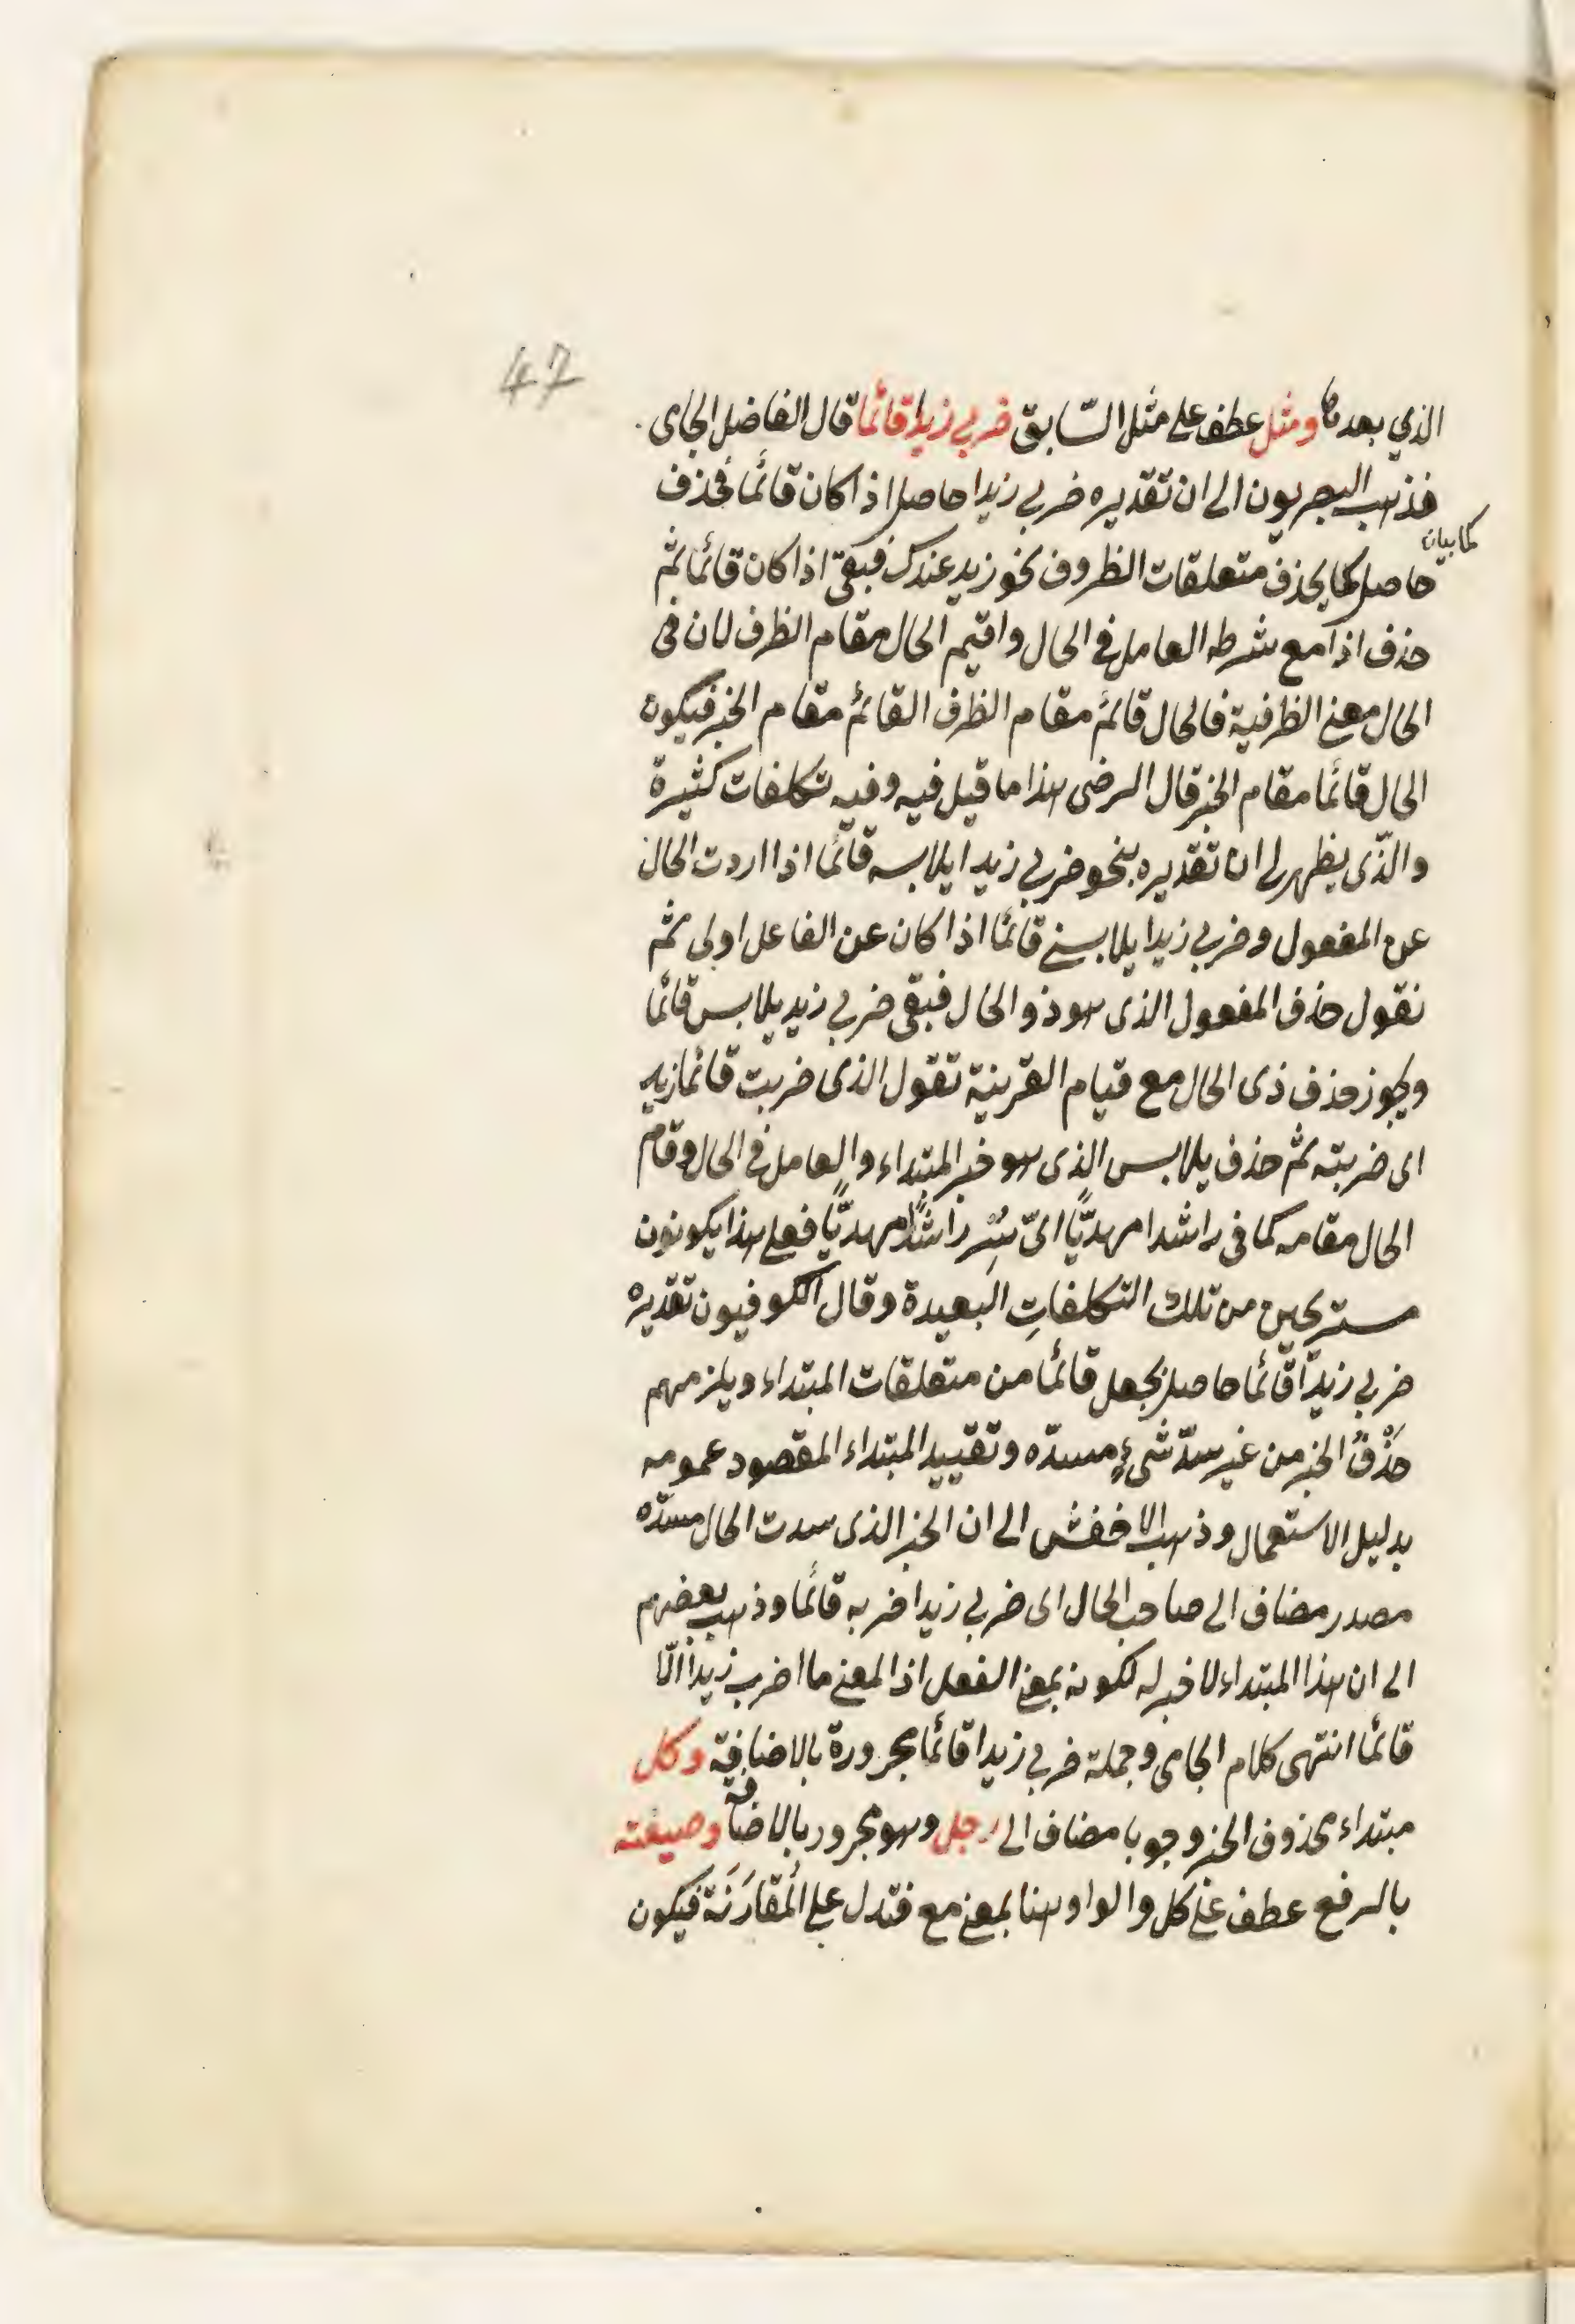 47
الذي بعدها ومثل عطف على مثل السّابق ضربي زيدا قائما قال الفاضل الجامى
فذهب البصريون الى ان تقديره ضربي زيدا حاصل اذا كان قائما فحذف
كما بيان
حاصل كما يحذف متعلقات الظروف نحو زيد عندك فبقى اذا كان قائما ثم
حذف اذا مع شرطه العامل في الحال واقيم الحال مقام الظرف لان فى
الحال معنى الظرفية فالحال قائم مقام الظرف القائم مقام الخبر فيكون
الحال قائما مقام الخبر قال الرضى هذا ما قيل فيه وفيه تكلفات كثيرة
والذّى يظهر لى ان تقديره بنحو ضربي زيدا يلابسه قائما اذا اردت الحال
عن المفعول وضربي زيدا يلابسنى قائما اذا كان عن الفاعل اولى ثم
نقول حذف المفعول الذى هو ذو الحال فبقى ضربي زيد يلابس قائما
ويجوز حذف ذى الحال مع قيام القرينة تقول الذى ضربت قائما زيد
اى ضربته ثم حذف يلابس الذى هو خبر المبتداء والعامل فى الحال وقام
الحال مقامه كما فى راشدا مهديًّا اىّ سِرْ راشدًا مهديًّا فعلى هذا يكونون
مستريحين من تلك التكلفاتِ البعيدة وقال الكوفيون تقديره
ضربي زيدًا قائما حاصل بجعل قائما من متعلقات المبتداء ويلزمهم
حَذْفُ الخبر من غير سدّ شىءٍ مسدّه وتقييد المبتداء المقصود عمومه
بدليل الاستعمال وذهب الاخفش الى ان الخبر الذى سدت الحال مسدّه
مصدر مضاف الى صاحب الحال اى ضربي زيدا ضربه قائما وذهب بعضهم
الى ان هذا المبتداء لا خبر له لكونه بمعنى الفعل اذ المعنى ما اضرب زيدًا الّا
قائما انتهى كلام الجامى وجملة ضربي زيدا قائما مجرورة بالاضافية وكل
مبتداء محذوف الخبر وجوبا مضاف الى رجل وهو مجرور بالاضافة وضيعته
بالرفع عطف على كل والواو هنا بمعنى مع فتدل على المُقارَنَة فيكون